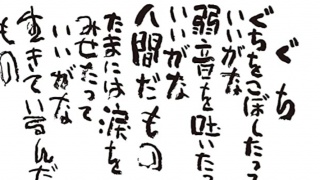 ぐち
ぐちをこぼしたって
いいがな
弱音を吐いたっ
いいがな
人間だもの
たまには涙を
みせたって
いいがな
生きているんだ
もの